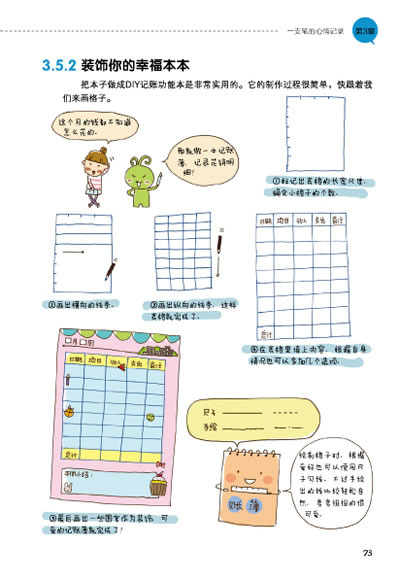 一支笔的心情记录
第3章
3.5.2 装饰你的幸福本本
把本子做成DIY记账功能本是非常实用的。它的制作过程很简单，快跟着我
们来画格子。
这个月的钱都不知道
怎么花的。
那就做一本记账
簿，记录花销明
细！
①标记出表格的长宽尺寸，
确定小格子的个数。
②画出横向的线条。
③画出纵向的线条，这样
表格就完成了。
日期 项目 收入 支出 备注
总计
④在表格里填上内容，根据自身
情况也可以多加几个选项。
□月□的
日期 项目 收入 支出 备注
总计
本月小结：
⑤最后画出一些图案作为装饰，可
爱的记账簿就完成了！
尺子
手绘
账簿
绘制格子时，根据
爱好也可以使用尺
子勾线，不过手绘
出的线比较轻松自
然，歪歪扭扭的很
可爱。
73